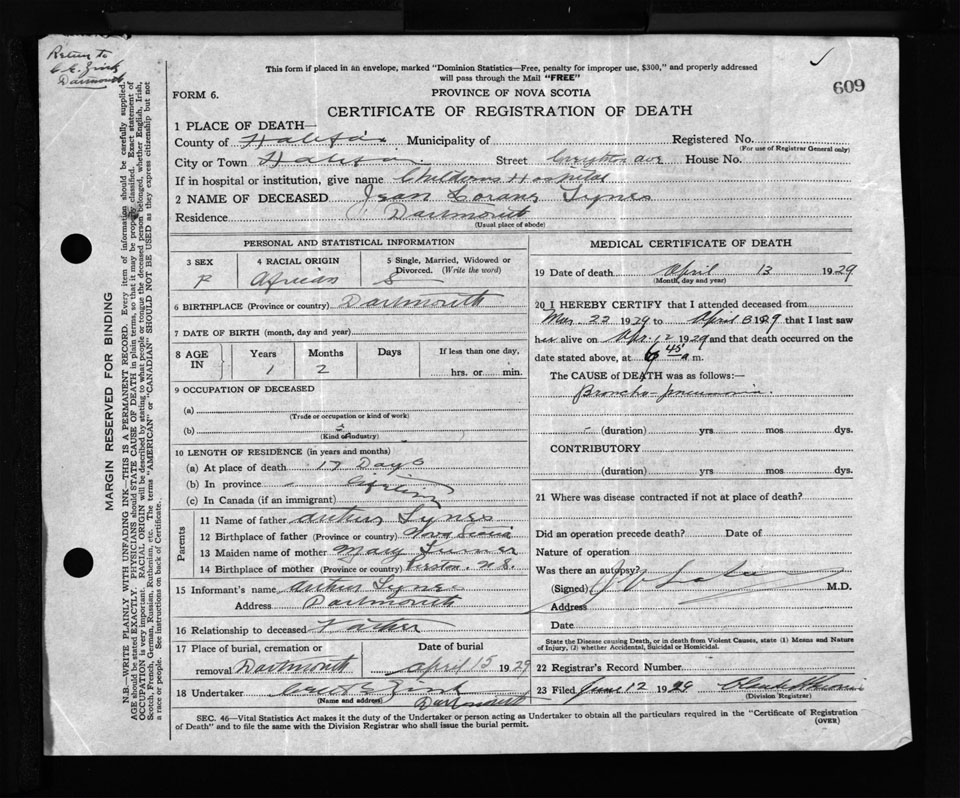 Return to
Dartmouth
This form if placed in an envelope, marked "Dominion Statistics—Free, penalty for improper use, $300," and properly addressed
will pass through the Mail "FREE"
609
FORM 6.
PROVINCE OF NOVA SCOTIA
CERTIFICATE OF REGISTRATION OF DEATH
1 PLACE OF DEATH—
County of Halifax Municipality of Registered No.
(For use of Registrar General only)
City or Town Halifax Street House No.
If in hospital or institution, give name Childrens Hospital
2 NAME OF DECEASED Jean Tynes
Residence Dartmouth
(Usual place of abode)
PERSONAL AND STATISTICAL INFORMATION
3 SEX
F
4 RACIAL ORIGIN
African
5 Single, Married, Widowed or
Divorced. (Write the word)
S
6 BIRTHPLACE (Province or country) Dartmouth
7 DATE OF BIRTH (month, day and year)
8 AGE IN
Years Months Days If less than one day,
1 2 hrs. or min.
9 OCCUPATION OF DECEASED
(a)
(Trade or occupation or kind of work)
(b)
(Kind of industry)
10 LENGTH OF RESIDENCE (in years and months)
(a) At place of death 17 Days
(b) In province
(c) In Canada (if an immigrant)
Parents
11 Name of father Arthur Tynes
12 Birthplace of father (Province or country) Nova Scotia
13 Maiden name of mother Mary Turner
14 Birthplace of mother (Province or country) N.S.
15 Informant's name Arthur Tynes
Address Dartmouth
16 Relationship to deceased Father
17 Place of burial, cremation or Date of burial
removal Dartmouth April 15 1929
18 Undertaker
(Name and address) Dartmouth
MEDICAL CERTIFICATE OF DEATH
19 Date of death April 13 1929
(Month, day and year)
20 I HEREBY CERTIFY that I attended deceased from
Mar. 22 1929 to April 13 1929 that I last saw
her alive on Apr. 12 1929 and that death occurred on the
date stated above, at 6 45 a m.
The CAUSE of DEATH was as follows:—
Broncho-pneumonia
(duration) yrs mos. dys.
CONTRIBUTORY
(duration) yrs. mos. dys.
21 Where was disease contracted if not at place of death?
Did an operation precede death? Date of
Nature of operation
Was there an autopsy?
(Signed) M.D.
Address
Date
State the Disease causing Death, or in death from Violent Causes, state (1) Means and Nature
of Injury, (2) whether Accidental, Suicidal or Homicidal.
22 Registrar's Record Number
23 Filed June 12 1929
(Division Registrar)
SEC. 46—Vital Statistics Act makes it the duty of the Undertaker or person acting as Undertaker to obtain all the particulars required in the "Certificate of Registration
of Death" and to file the same with the Division Registrar who shall issue the burial permit.
(OVER)
MARGIN RESERVED FOR BINDING
N.B.—WRITE PLAINLY WITH UNFADING INK—THIS IS A PERMANENT RECORD. Every item of information should be carefully supplied.
AGE should be stated EXACTLY. PHYSICIANS should STATE CAUSE OF DEATH in plain terms, so that it may be properly classified. Exact statement of
OCCUPATION is very important. RACIAL ORIGIN will be described by stating to what people or tongue the deceased person belonged, whether English, Irish,
Scotch, French, German, Russian, Ruthenian, etc. The terms "AMERICAN" or "CANADIAN" SHOULD NOT BE USED as they express citizenship but not
a race or people. See instructions on back of Certificate.